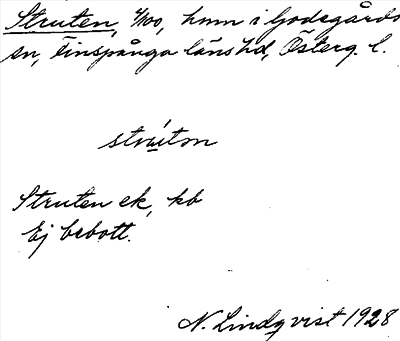 Struten, 4/100, hmn i Godegårds
sn, Finspånga läns hd, Österg. l.
strút̲ɘn
Struten ek, kb
Ej bebott.
N. Lindqvist 1928